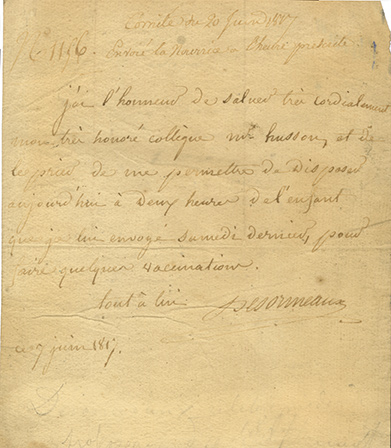 Comité du 20 juin 1817
N.° 1156. Envoié la Nourrice à l'heure préscite.
j'ai l'honneur de saluer très cordialement
mon très honoré collègue mr husson, et de
le prier de me permettre de disposer
aujourd'hui à deux heures de l'enfant
que je lui envoyé samedi dernier, pour
faire quelques vaccinations.
tout à lui Desormeaux
ce 7 juin 1817.